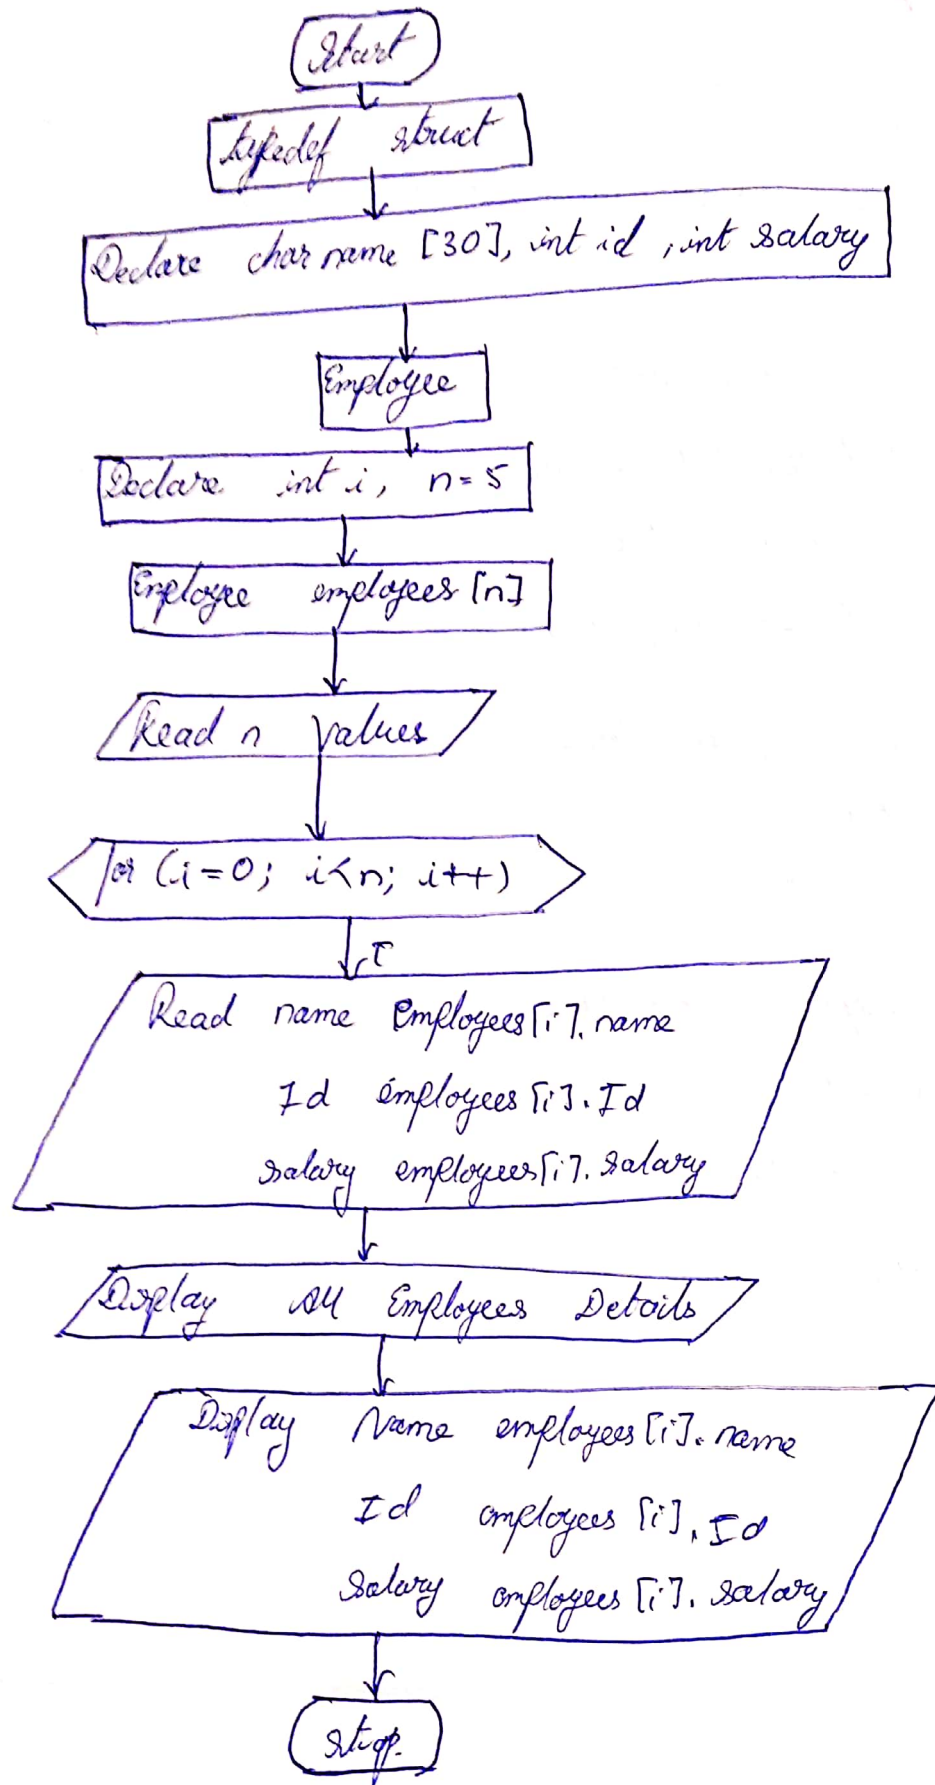 Start
typedef struct
Declare char name [30], int id , int salary
Employee
Declare int i, n = 5
Employee employees [n]
Read n values
for (i = 0; i < n; i++)
T
Read name Employees[i].name
Id employees[i].Id
salary employees[i].salary
Display All Employees Details
Display Name employees[i].name
Id employees [i].Id
Salary employees[i].salary
stop.